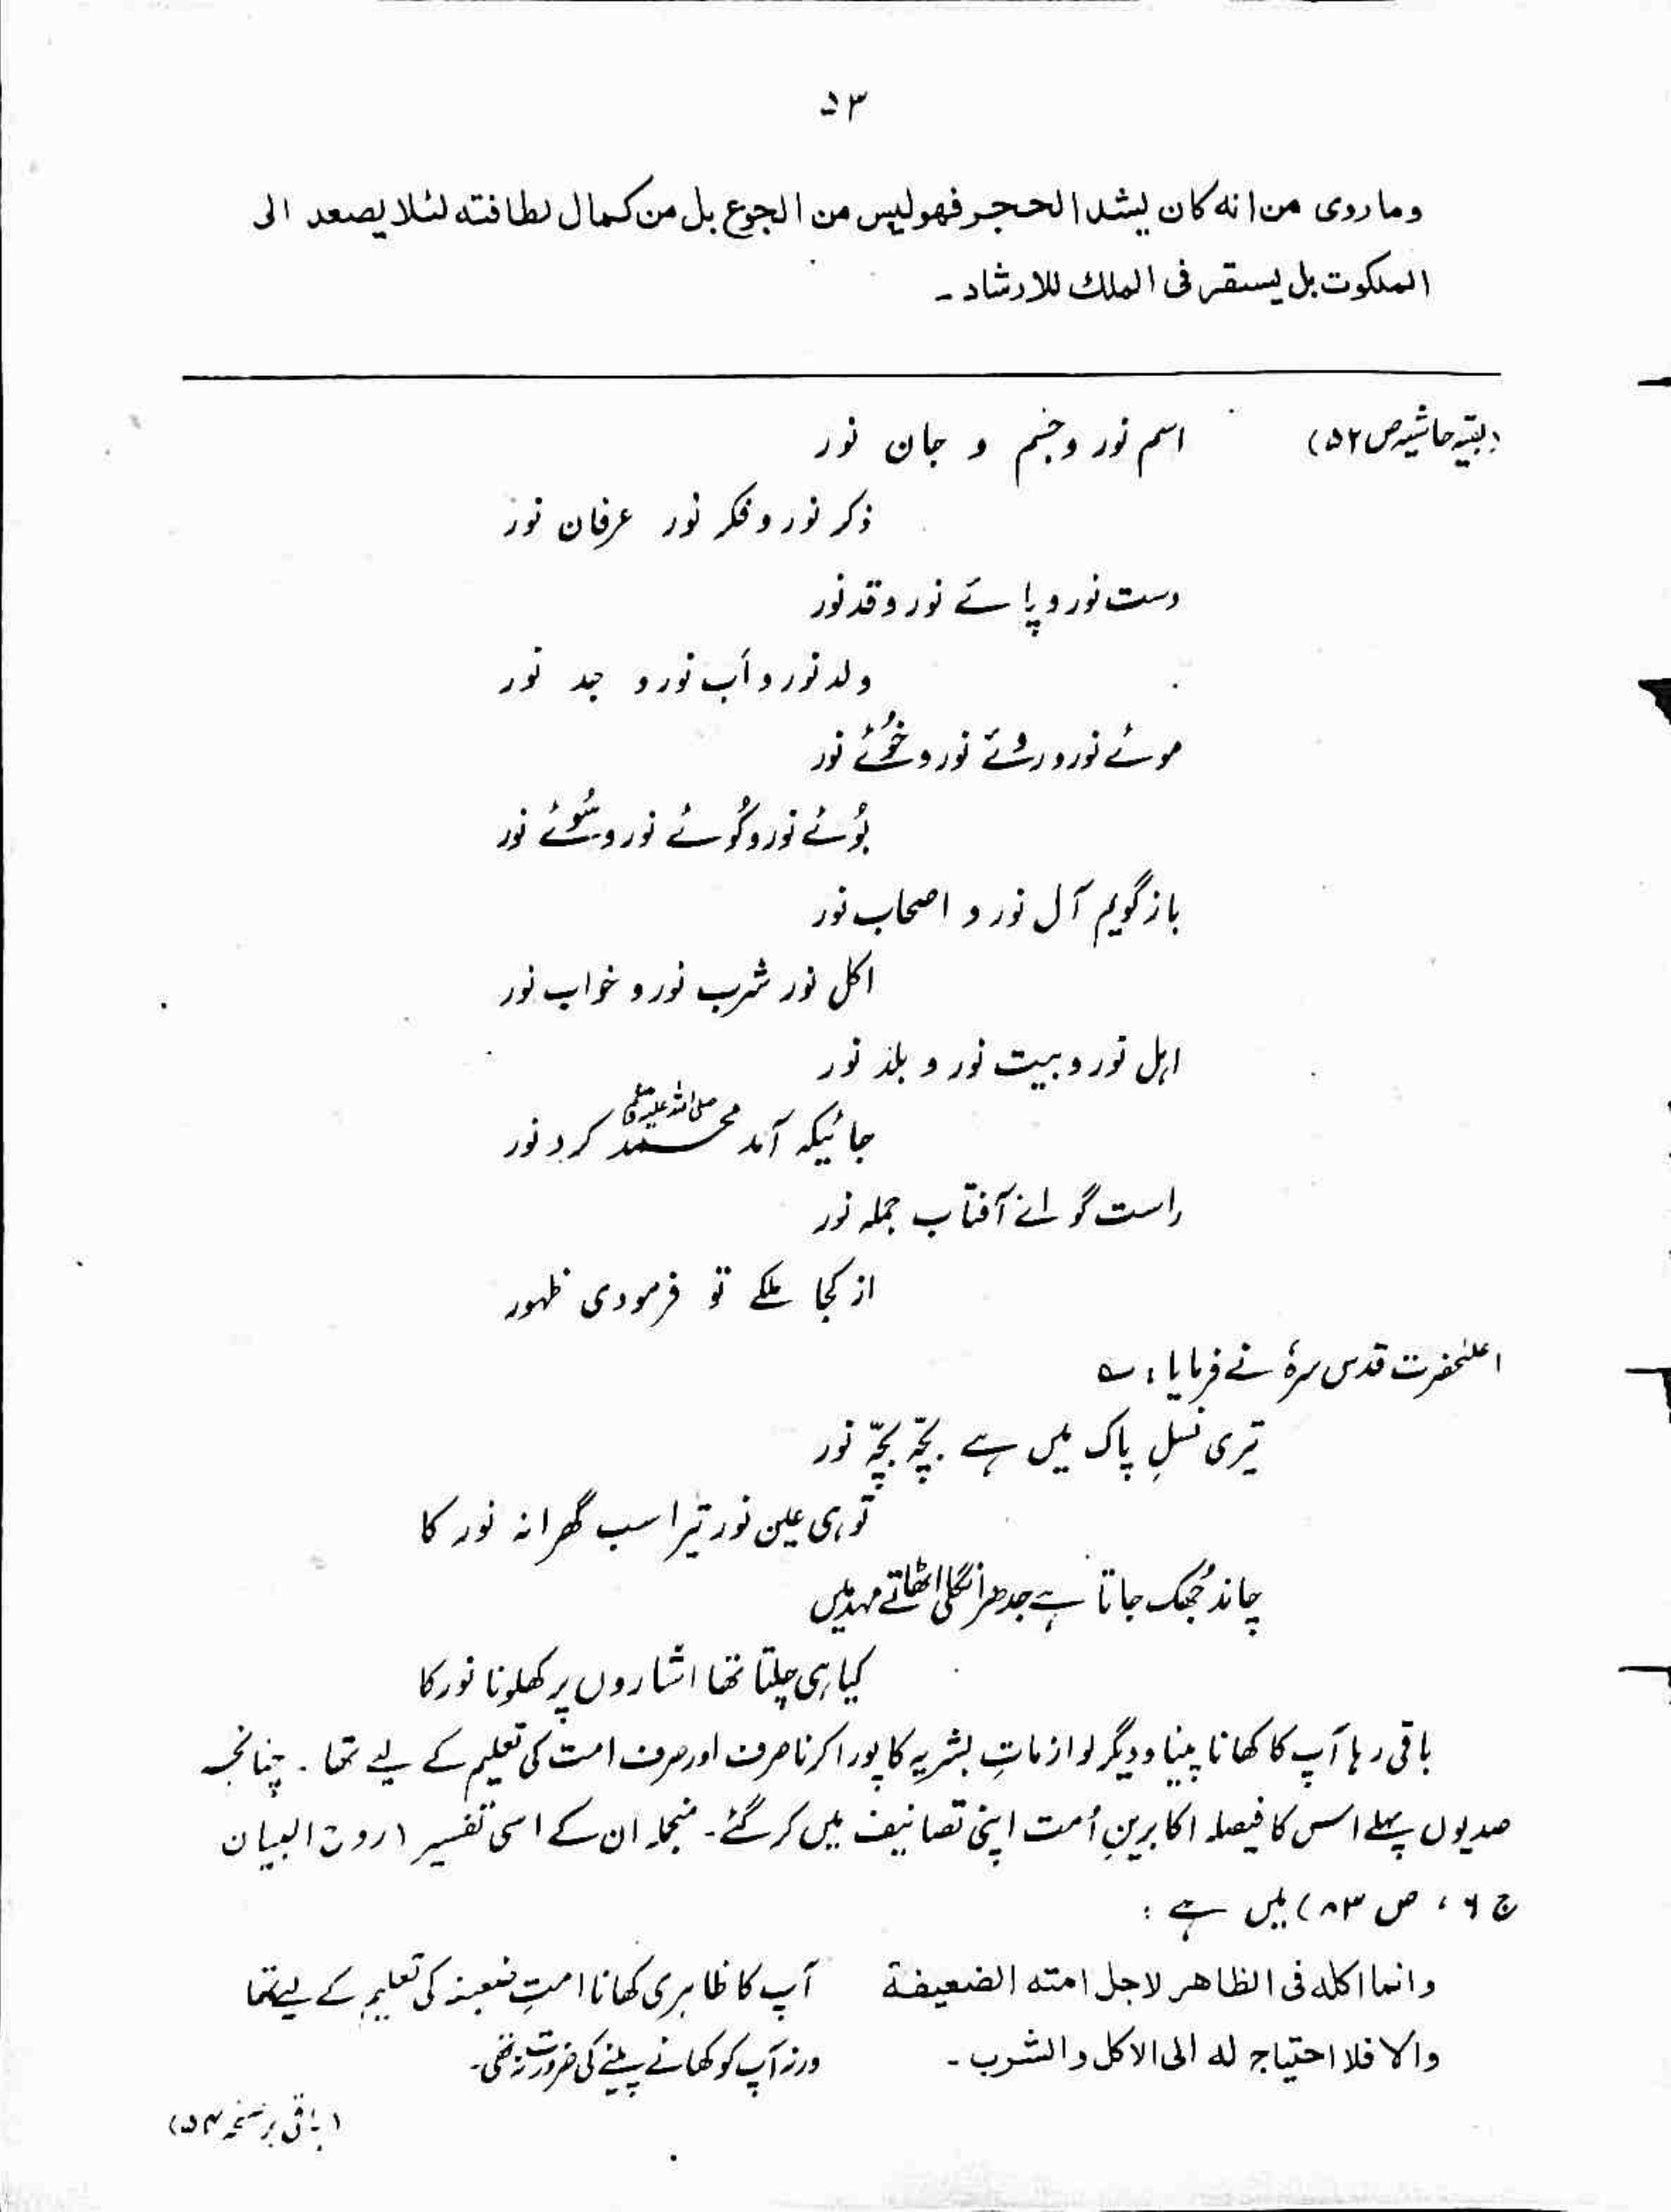 ۵۳
وما روى من انه كان يشد الحجر فهو ليس من الجوع بل من كمال لطافته لئلا يصعد الى
الملكوت بل يستقر فى الملك للارشاد ۔
(بقیہ حاشیہ ص ۵۲) اسم نور و جسم و جان نور
ذکر نور و فکر نور عرفان نور
دست نور و پائے نور و قد نور
ولد نور و اَب نور و جد نور
موئے نور و روئے نور و خُوئے نور
بُوئے نور و گُوئے نور و سُوئے نور
باز گویم آل نور و اصحاب نور
اکل نور شرب نور و خواب نور
اہل نور و بیت نور و بلد نور
جائیکہ آمد محمد صلی اللہ علیہ وسلم کرد نور
راست گو اے آفتاب جملہ نور
از کجا ملکے تو فرمودی ظہور
اعلیٰحضرت قدس سرہٗ نے فرمایا : ؎
تیری نسلِ پاک میں ہے بچّہ بچّہ نور
تو ہی عین نور تیرا سب گھرانہ نور کا
چاند جُھک جاتا ہے جدھر انگلی اٹھاتے مہد میں
کیا ہی چلتا تھا اشاروں پر کھلونا نور کا
باقی رہا آپ کا کھانا پینا و دیگر لوازماتِ بشریہ کا پورا کرنا صرف اور صرف امت کی تعلیم کے لیے تھا ۔ چنانچہ
صدیوں پہلے اس کا فیصلہ اکابرینِ اُمت اپنی تصانیف میں کر گئے ۔ منجملہ ان کے اسی تفسیر (روح البیان
ج ۶ ، ص ۸۳) میں ہے :
وانما اكله فى الظاهر لاجل امته الضعيفة آپ کا ظاہری کھانا امتِ ضعیفہ کی تعلیم کے لیے تھا
والا فلا احتياج له الى الاكل والشرب ۔ ورنہ آپ کو کھانے پینے کی ضرورت نہ تھی ۔
(باقی بر صفحہ ۵۴)